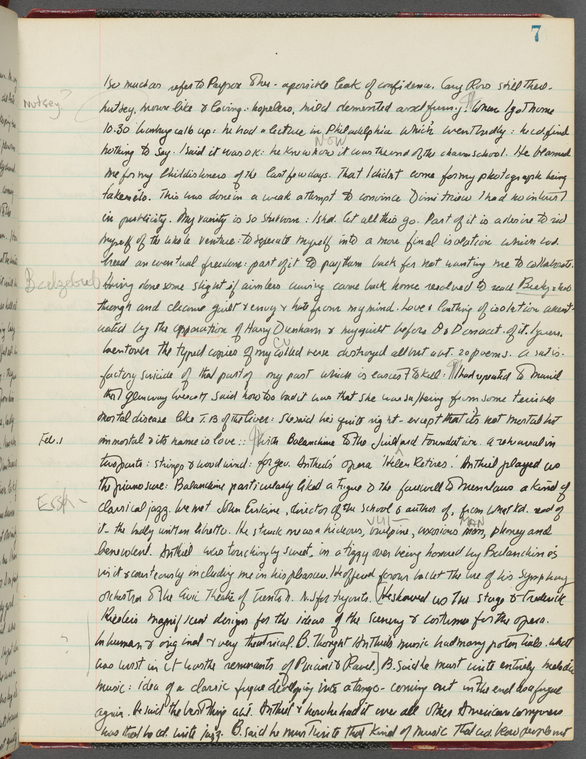 7
Nutsy?
so much as refer to Payson & her - a possible leak of confidence. Cary Ross still there.
nutsey, mouse like & loving: hopeless, mild demented and funny. When I got home
10.30 calls up: he had a lecture in Philadelphia which went badly: he cd find
NOW
nothing to say. I said it was OK: he knew how it was the end of the charm school. He blamed
me for my childishness of the last few days. That I didn't come for my photograph being
taken etc. This was done in a weak attempt to convince Dimitriew I had no interest
in publicity. My vanity is so: I shd. let all this go. Part of it a desire to rid
myself of the whole venture: to separate myself into a more final isolation which wd.
breed an eventual freedom: part of it to pay them back for not wanting me to collaborate.
Beelzebub
Having done some slight of aimless came back home resolved to read
through and cleanse guilt & envy & hate from my mind. Love & loathing of isolation
uated by the apparition of Harry Dunham & my guilt before of it. I
CO
went over the typed copies of my verse destroyed all but abt. 20 poems. A satis-
factory suicide of that part of my past which is easiest to kill. I had repeated to Muriel
that Glenway Wescott said how too bad it was that she was suffering from some terrible
mortal disease like T.B. of the liver: She said he's quite right - except that its not mortal but
Feb. 1
immortal & its name is love:: With Balanchine to the Juilliard Foundation a rehearsal in
two parts: strings & wood wind: for Geo. Antheil's opera 'Helen Retires'. Antheil played us
the piano score: Balanchine particularly liked a fugue & the farewell to Menelaus a kind of
Ersk-
classical jazz. We met John Erskine, director of the school & author of, from what Id. read of
VUL- MAN
it - the badly written libretto. He struck me as a hideous, vulpine, man, phoney and
benevolent. Antheil was touchingly sweet, in a tizzy over being honored by Balanchine's
visit & courteously including me in his pleasures. He offered for our ballet the use of his Symphony
orchestra & the Civic Theatre of Trenton. N.J. for tryouts. He showed us the stage & Frederick
Kiesler's magnificent designs for the ideas of the scenery & costumes for the opera.
?
Inhuman & original & very theatrical. B. thought Antheil's music had many potentials. What
was worst in it was the remnants of Puccini & Ravel. B. said he must write entirely melodic
music: idea of a classic fugue developing into a tango - coming out in the end as a fugue
again. He said the best thing abt. Antheil & how he had it over all other American composers
was that he cd. write jazz. B. said he must write that kind of music that wd.